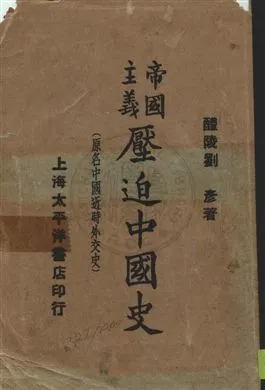 醴陵劉 彥著
帝國
主義
壓迫中國史
(原名中國近時外交史)
上海太平洋書店印行